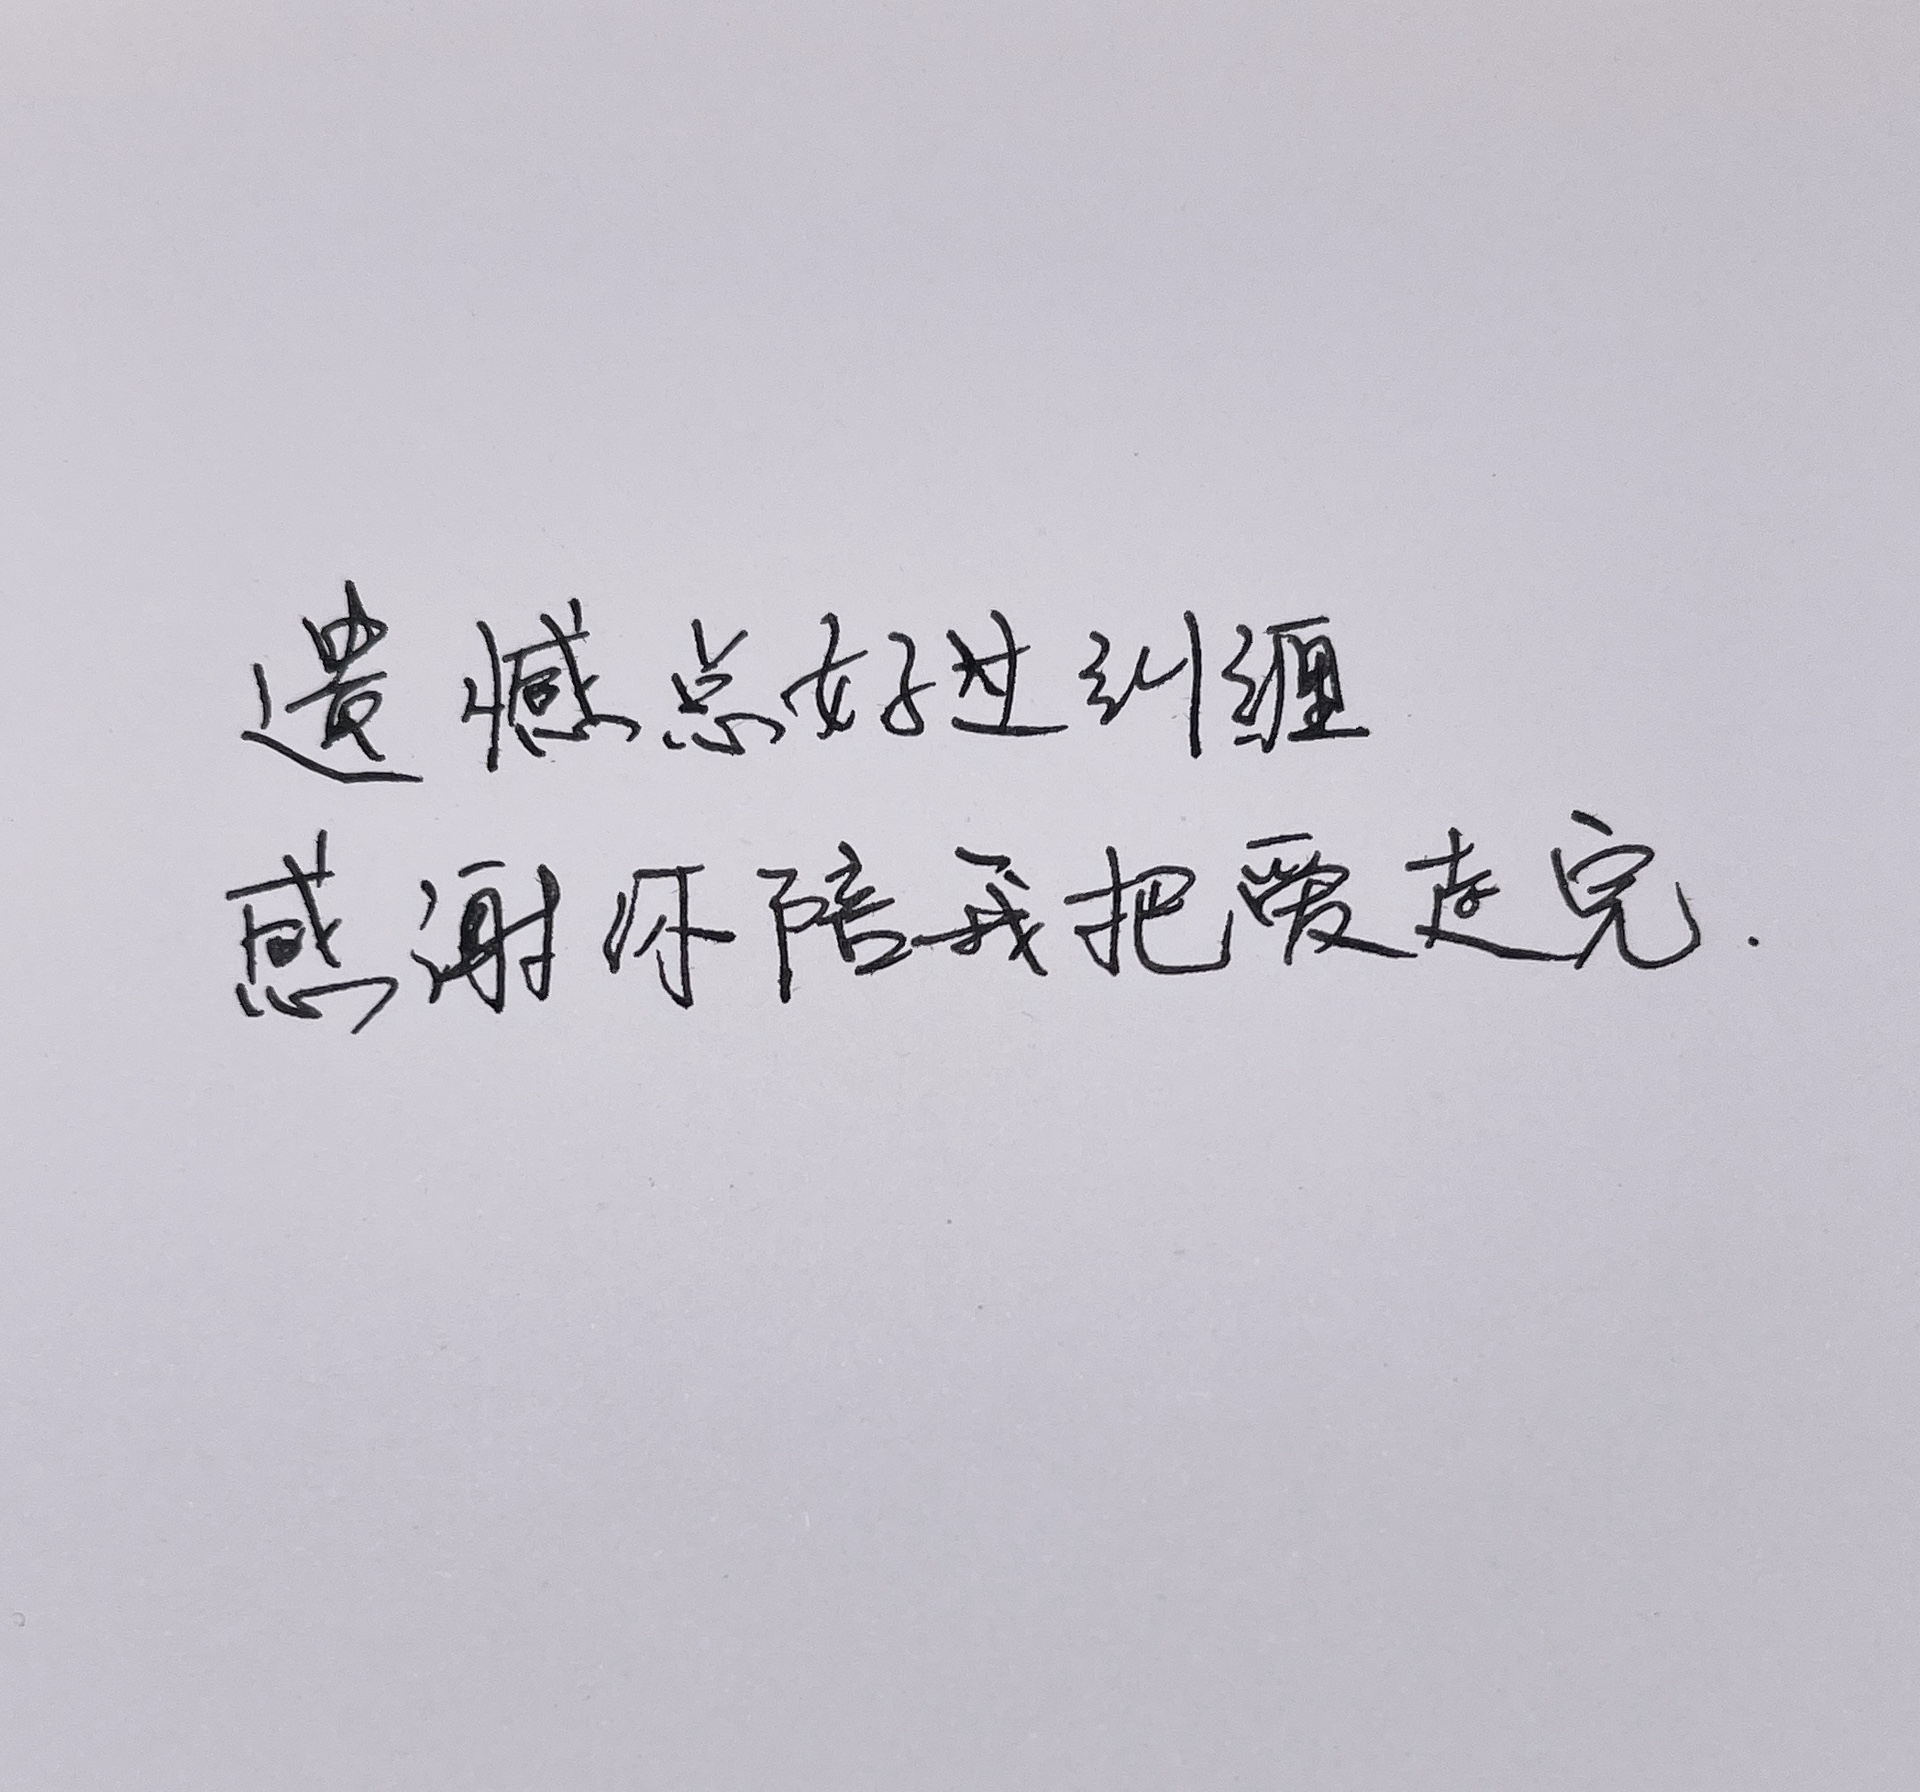 遗憾总好过纠缠
感谢你陪我把爱走完.